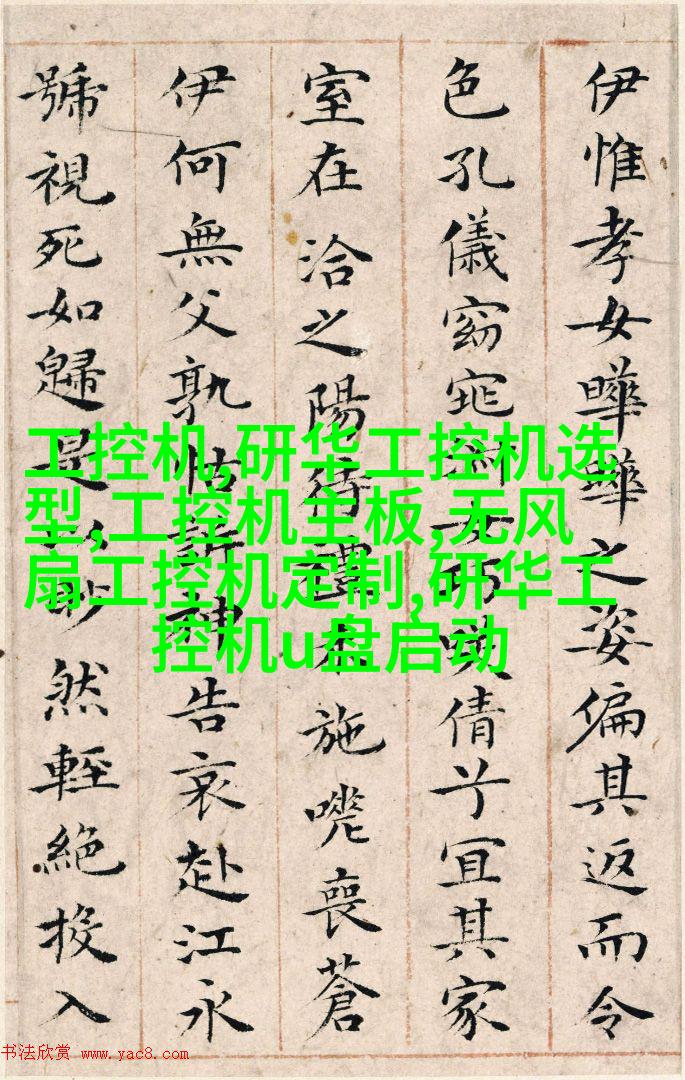 伊惟孝女曄曄之姿偏其返而令
色孔儀窈窕淑女巧咲倩兮宜其家
室在洽之陽待禮未施嗟喪蒼
伊何無父孰怙訴神告哀赴江永
號視死如歸是以眇然輕絕投入
工控机,研华工控机选
型,工控机主板,无风
扇工控机定制,研华工
控机u盘启动
书法欣赏 www.yac8.com